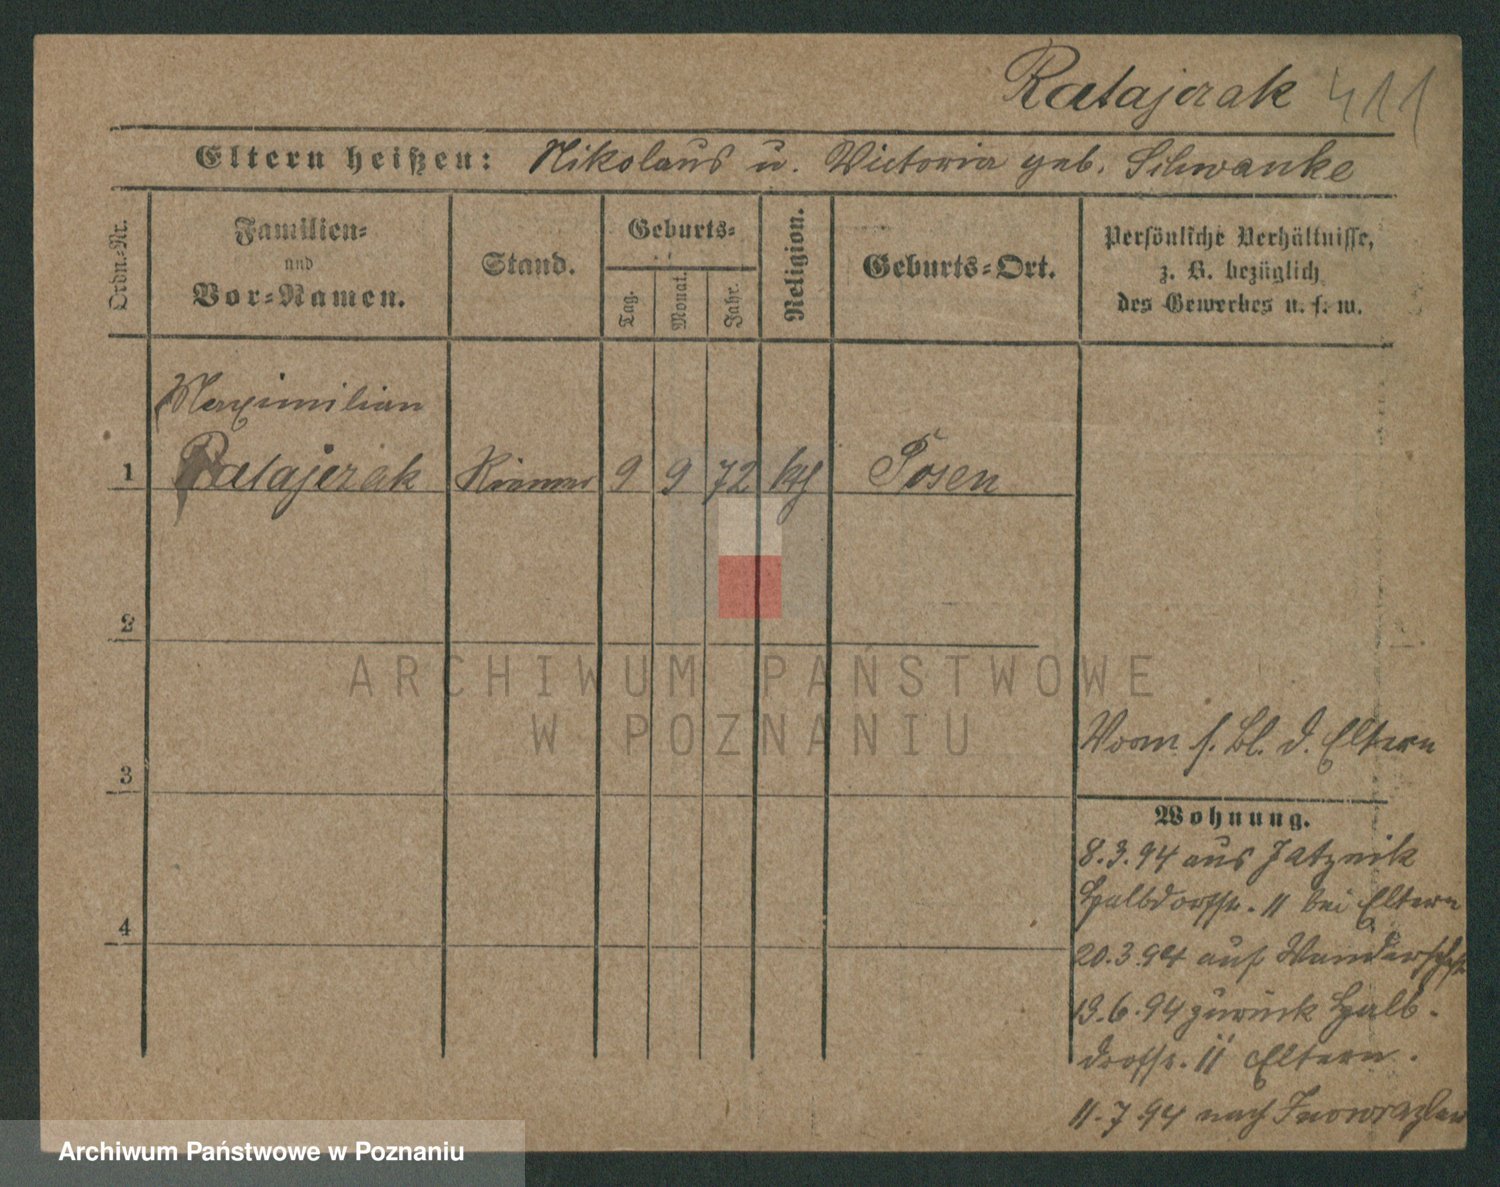 Ratajczak 411
Eltern heißen: Nikolaus u. Victoria geb. Schwanke
Ordn.-Nr.
Familien-
und
Vor-Namen.
Stand.
Geburts-
Tag.
Monat.
Jahr.
Religion.
Geburts-Ort.
Persönliche Verhältnisse,
z. B. bezüglich
des Gewerbes u. s. w.
Maximilian
1 Ratajczak Riemer 9 9 72 kth Posen
2
3
4
ARCHIWUM PAŃSTWOWE
W POZNANIU
Vorm s. Bl. d. Eltern
Wohnung.
8.3.94 aus Jatznik
Halbdorfstr. 11 bei Eltern
20.3.94 auf Wanderschaft
19.6.94 zurück Halb-
dorfstr. 11 Eltern.
11.7.94 nach Inowrazlaw
Archiwum Państwowe w Poznaniu